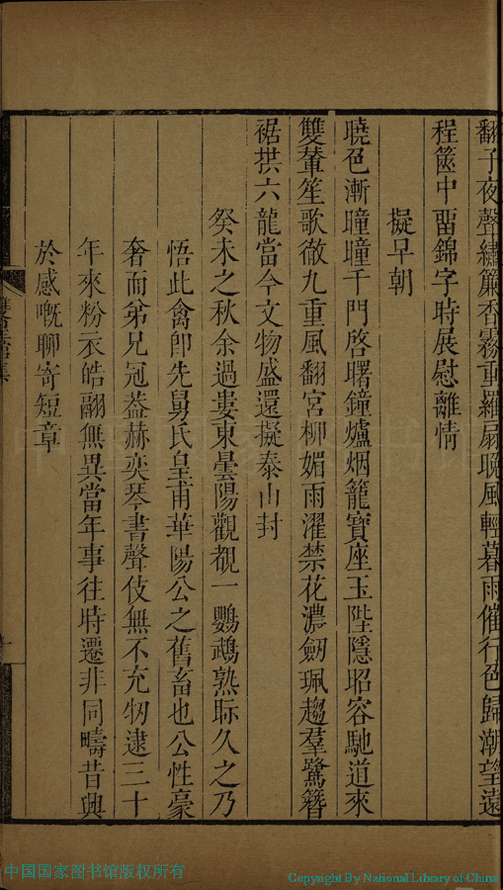 翻子夜聲繡簾香霧重羅扇晩風輕暮雨催行色歸潮望遠
程篋中畱錦字時展慰離情
擬早朝
曉色漸曈曈千門啓曙鐘爐烟籠寶座玉陛隱昭容馳道來
雙輦笙歌徹九重風翻宮柳媚雨濯禁花濃劒珮趨羣鷺簪
裾拱六龍當今文物盛還擬泰山封
癸未之秋余過婁東曇陽觀覩一鸚鵡熟眎久之乃
悟此禽卽先舅氏皇甫華陽公之舊畜也公性豪
奢而弟兄冠葢赫奕琴書聲伎無不充牣逮三十
年來粉衣皓翮無異當年事往時遷非同疇昔興
於感嘅聊寄短章
中国国家图书馆版权所有
Copyright By National Library of China